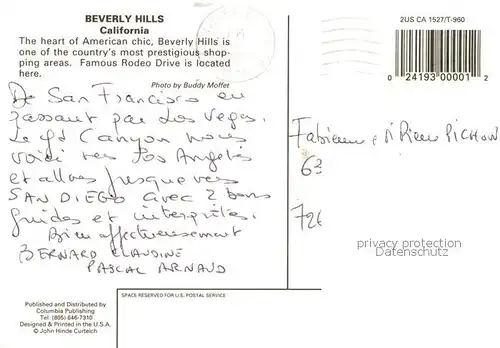 BEVERLY HILLS
California
The heart of American chic, Beverly Hills is
one of the country's most prestigious shop-
ping areas. Famous Rodeo Drive is located
here.
Photo by Buddy Moffet
De San Francisco en
passant par Las Vegas.
Le gd Canyon nous
voici vers Los Angelés
et allons jusque vers
SAN DIEGO avec 2 bons
guides et interprètes.
Bien affectueusement
BERNARD CLAUDINE
PASCAL ARNAUD
Published and Distributed by
Columbia Publishing
Tel: (805) 646-7310
Designed & Printed in the U.S.A.
© John Hinde Curteich
SPACE RESERVED FOR U.S. POSTAL SERVICE
2US CA 1527/T-960
0 24193 00001 2
Fabienne et Pierre PICHON
63
72
privacy protection
Datenschutz